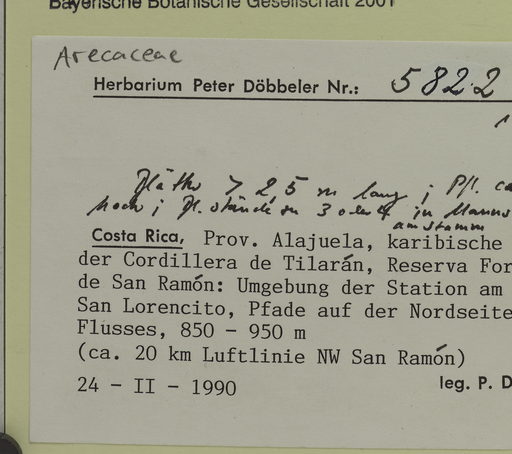 Bayerische Botanische Gesellschaft 2001
Arecaceae
Herbarium Peter Döbbeler Nr.: 5822
Blätter > 2,5 m lang; Pfl. ca
hoch; Bl.stände zu 3 oder 4 in Manns
am Stamm
Costa Rica, Prov. Alajuela, karibische
der Cordillera de Tilarán, Reserva For
de San Ramón: Umgebung der Station am
San Lorencito, Pfade auf der Nordseite
Flusses, 850 - 950 m
(ca. 20 km Luftlinie NW San Ramón)
24 - II - 1990 leg. P. D